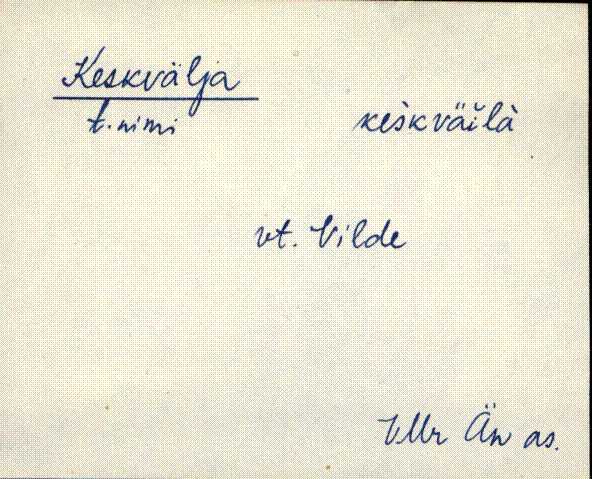 Keskvälja
t. nimi
keskväi̮là
vt. Vilde
VMr Än as.